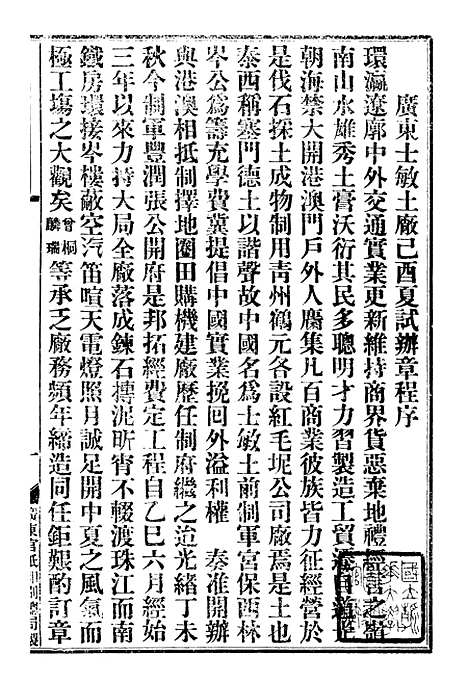 廣東士敏土廠己酉夏試辦章程序
環瀛遼廓中外交通實業更新維持商界貨惡棄地禮經善之嶺
南山水雄秀土膏沃衍其民多聰明才力習製造工貿遷自道
朝海禁大開港澳門戶外人麕集凡百商業彼族皆力征經營於
是伐石採土成物制用靑州鶴元各設紅毛坭公司廠焉是土也
泰西稱塞門德土以諧聲故中國名爲士敏土前制軍宮保西林
岑公爲籌充學費冀提倡中國實業挽回外溢利權 奏准開辦
與港澳相抵制擇地圈田購機建廠歷任制府繼之迨光緒丁未
秋今制軍豐潤張公開府是邦拓經費定工程自乙巳六月經始
三年以來力持大局全廠落成鍊石摶泥昕宵不輟渡珠江而南
鐵房環接岑樓蔽空汽笛喧天電燈照月誠足開中夏之風氣而
極工塲之大觀矣曾桐麟瑞等承乏廠務頻年締造同任鉅艱酌訂章
廣東官紙印刷總局製